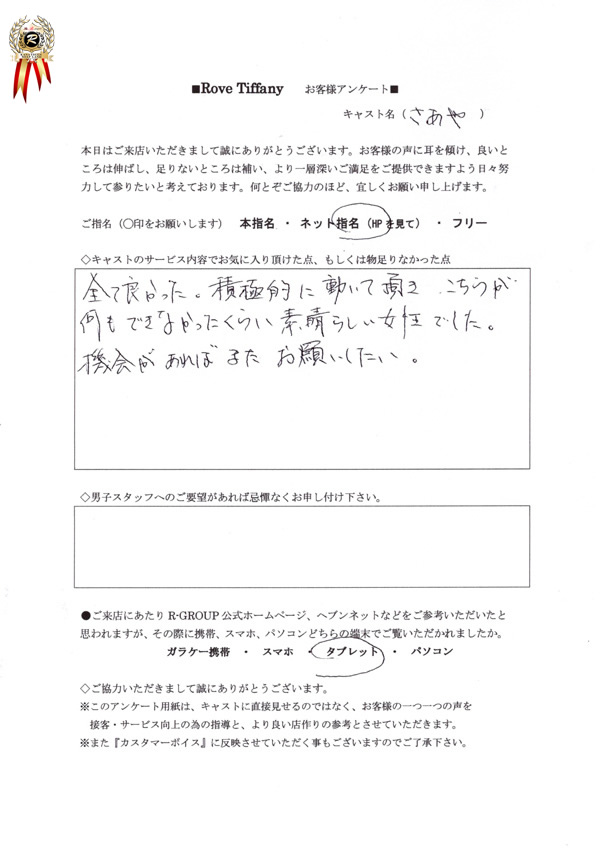 R
■Rove Tiffany お客様アンケート■
キャスト名（さあや）
本日はご来店いただきまして誠にありがとうございます。お客様の声に耳を傾け、良いと
ころは伸ばし、足りないところは補い、より一層深いご満足をご提供できますよう日々努
力して参りたいと考えております。何とぞご協力のほど、宜しくお願い申し上げます。
ご指名（〇印をお願いします） 本指名 ・ ネット指名（HPを見て） ・ フリー
◇キャストのサービス内容でお気に入り頂けた点、もしくは物足りなかった点
全て良かった。積極的に動いて頂き こちらが
何もできなかったくらい素晴らしい女性でした。
機会があればまたお願いしたい。
◇男子スタッフへのご要望があれば忌憚なくお申し付け下さい。
●ご来店にあたり R-GROUP 公式ホームページ、ヘブンネットなどをご参考いただいたと
思われますが、その際に携帯、スマホ、パソコンどちらの端末でご覧いただかれましたか。
ガラケー携帯 ・ スマホ ・ タブレット ・ パソコン
◇ご協力いただきまして誠にありがとうございます。
※このアンケート用紙は、キャストに直接見せるのではなく、お客様の一つ一つの声を
接客・サービス向上の為の指導と、より良い店作りの参考とさせていただきます。
※また『カスタマーボイス』に反映させていただく事もございますのでご了承下さい。